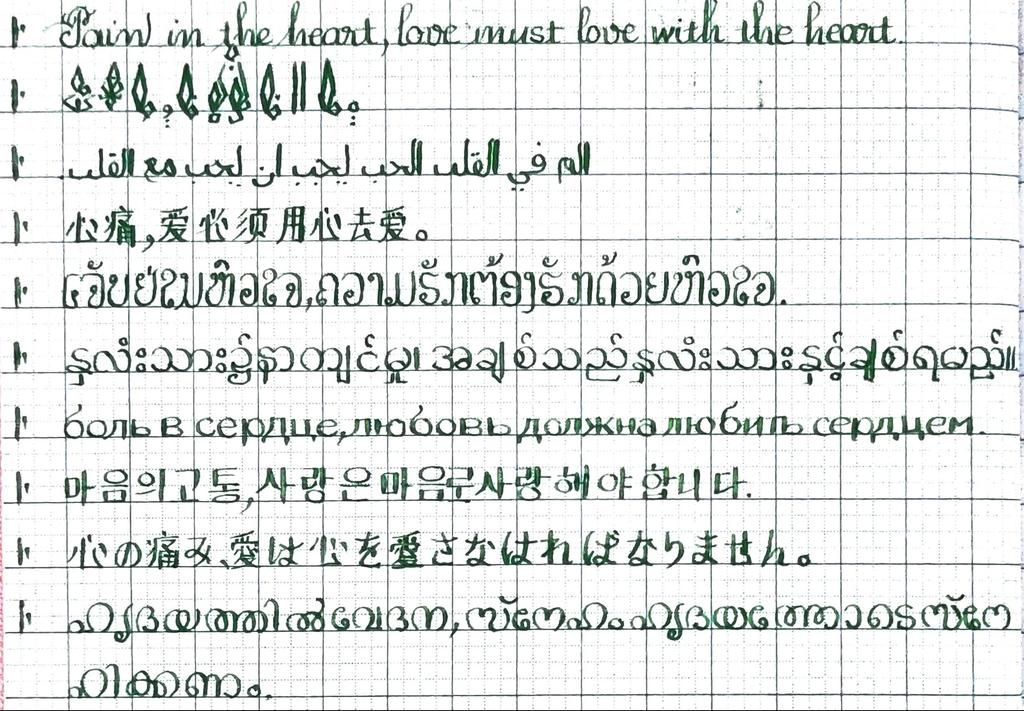 Pain in the heart, love must love with the heart.
الم في القلب الحب يجب ان يحب مع القلب
心痛,爱必须用心去爱。
ເຈັບຢູ່ໃນຫົວໃຈ,ຄວາມຮັກຕ້ອງຮັກດ້ວຍຫົວໃຈ.
နှလုံးသား၌နာကျင်မှု၊ အချစ်သည်နှလုံးသားနှင့်ချစ်ရမည်။
боль в сердце, любовь должна любить сердцем.
마음의 고통, 사랑은 마음로 사랑해야 합니다.
心の痛み、愛は心を愛さなければなりません。
ഹൃദയത്തിൽ വേദന, സ്നേഹം ഹൃദയത്തോടെ സ്നേ
ഹിക്കണം.